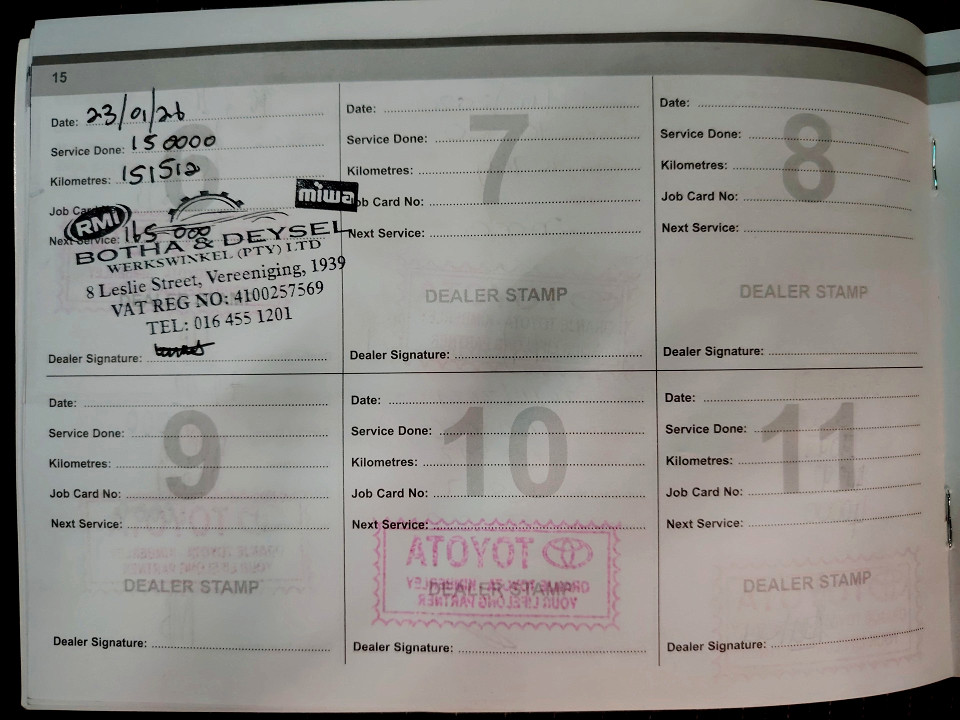 15
Date: 23/01/26
Service Done: 150000
Kilometres: 151512
Job Card
RMI
miwa
Next Service: 165 000
BOTHA & DEYSEL
WERKSWINKEL (PTY) LTD
8 Leslie Street, Vereeniging, 1939
VAT REG NO: 4100257569
TEL: 016 455 1201
Dealer Signature:
7
Date:
Service Done:
Kilometres:
Job Card No:
Next Service:
DEALER STAMP
Dealer Signature:
8
Date:
Service Done:
Kilometres:
Job Card No:
Next Service:
DEALER STAMP
Dealer Signature:
9
Date:
Service Done:
Kilometres:
Job Card No:
Next Service:
DEALER STAMP
Dealer Signature:
10
Date:
Service Done:
Kilometres:
Job Card No:
Next Service:
TOYOTA
DEALER STAMP
YOUR LIFELONG PARTNER
Dealer Signature:
11
Date:
Service Done:
Kilometres:
Job Card No:
Next Service:
DEALER STAMP
Dealer Signature: